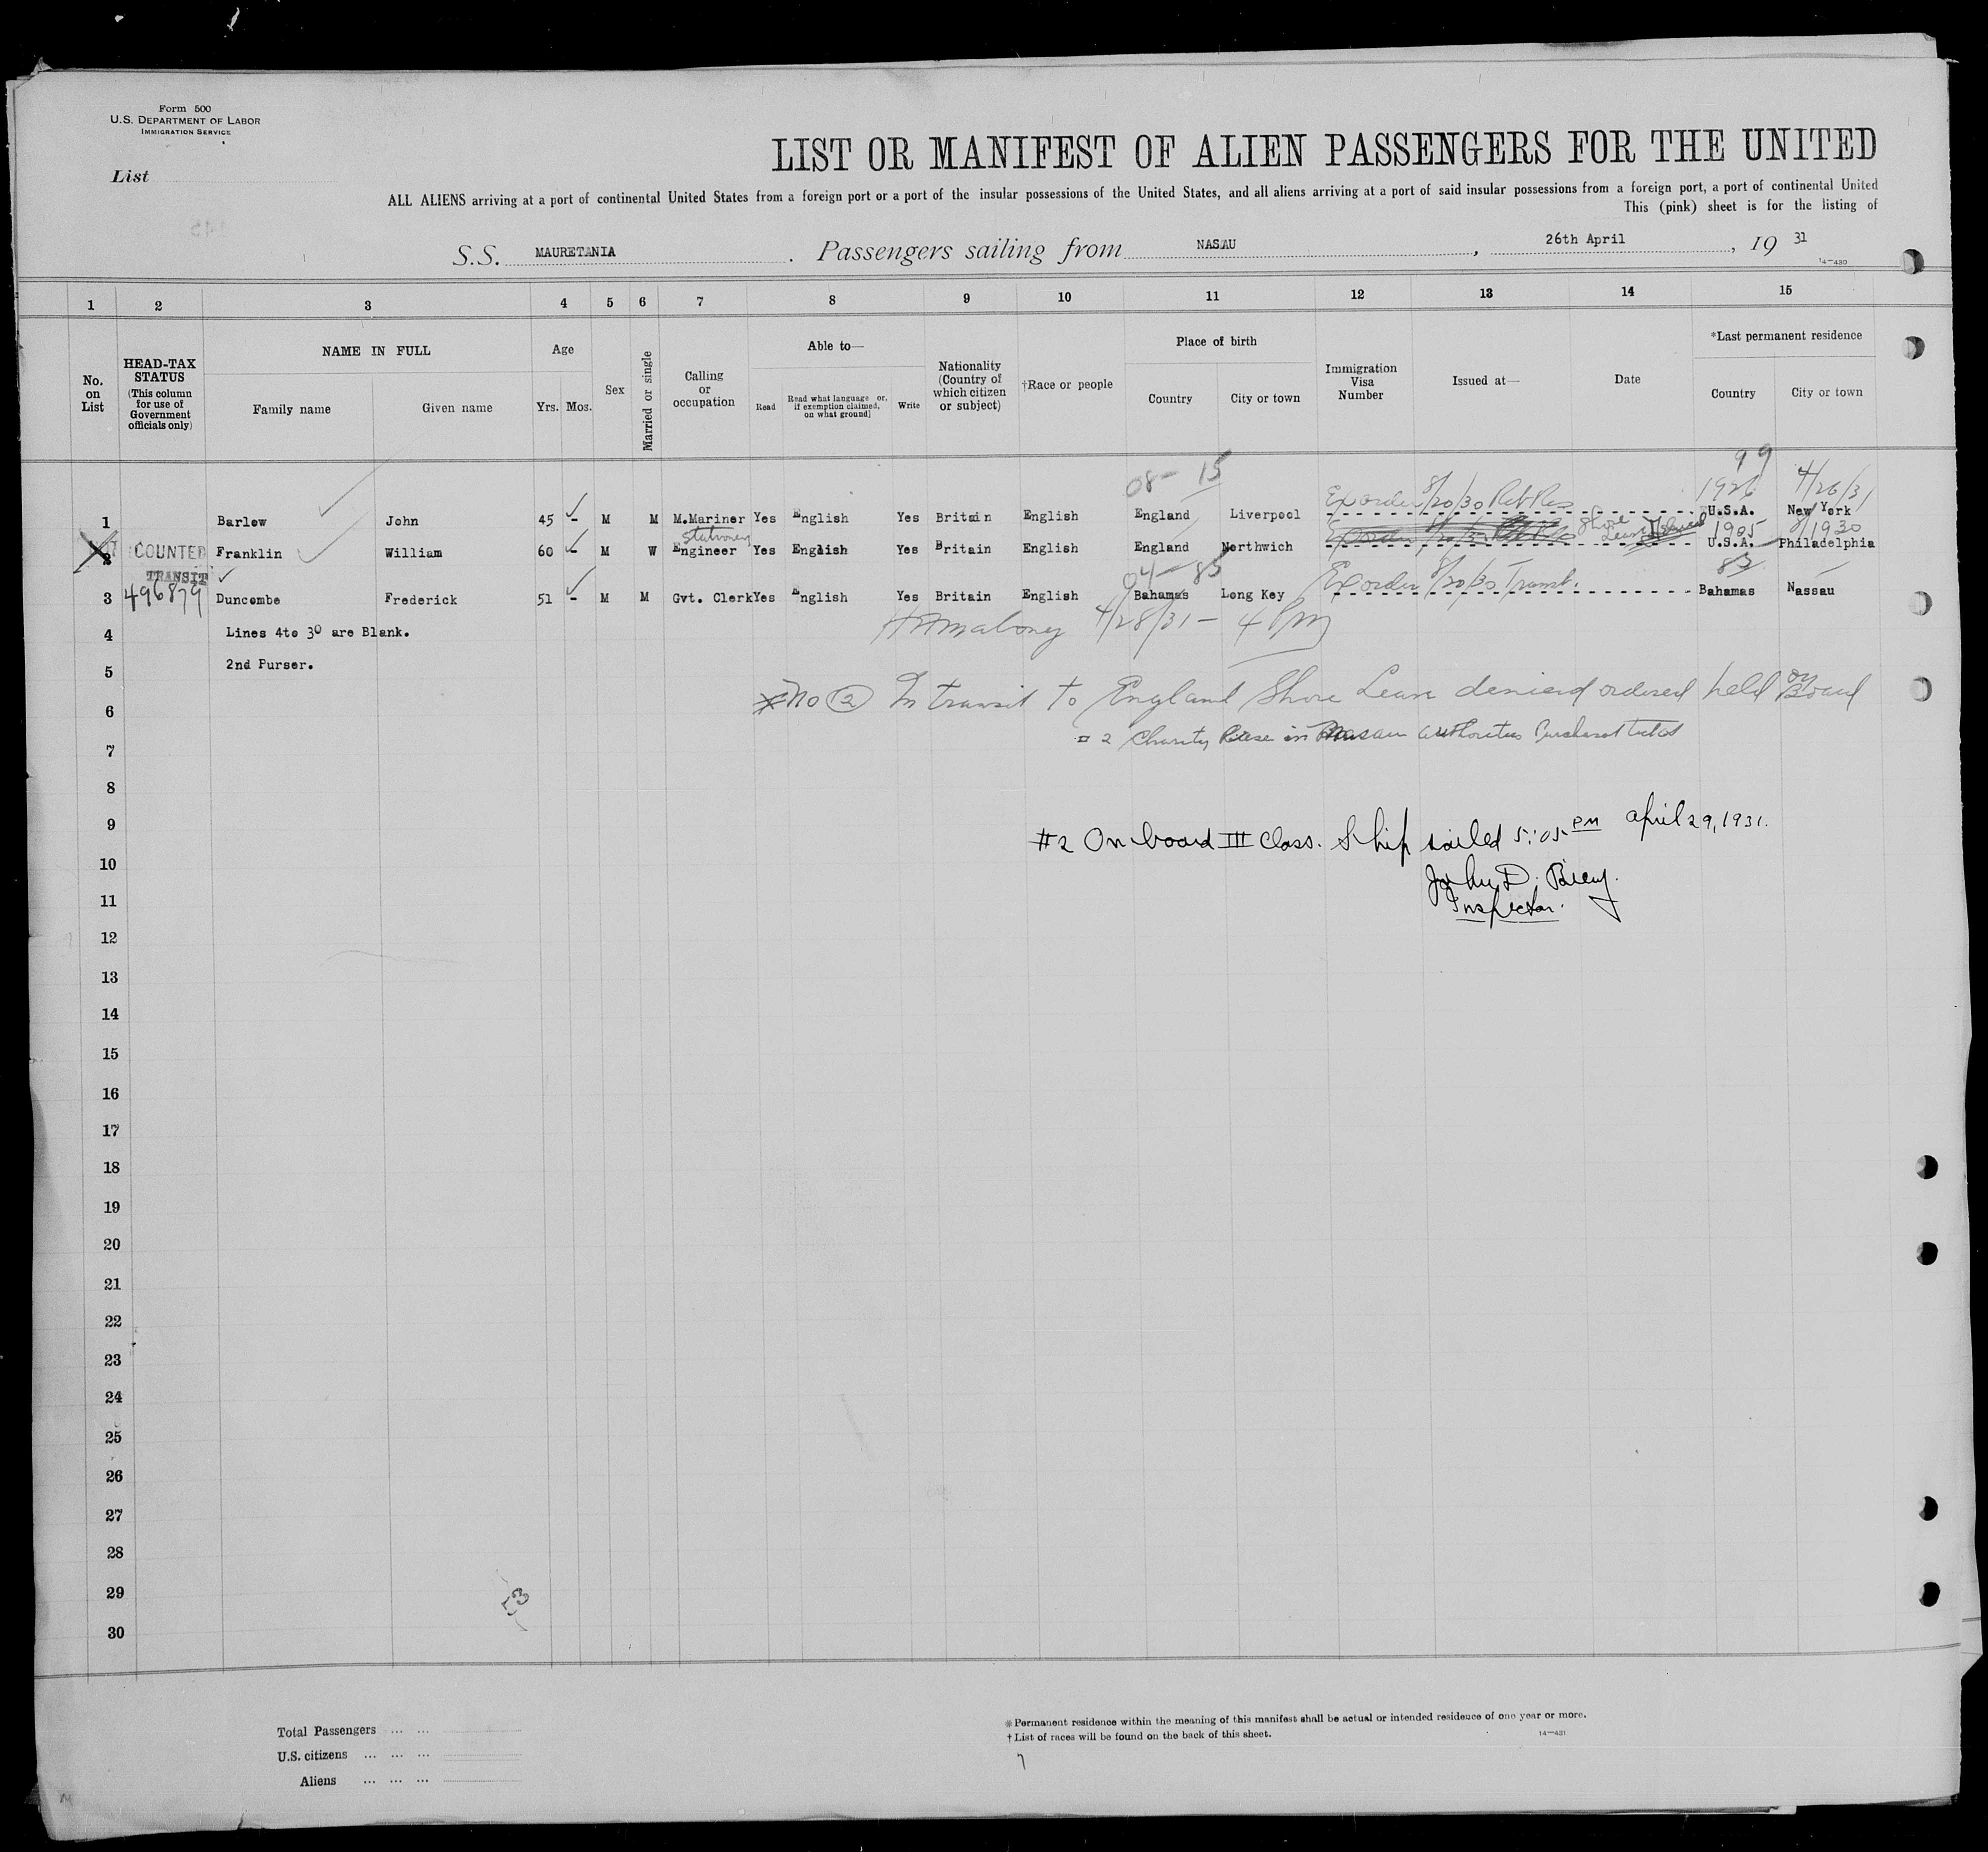 Form 500
U.S. DEPARTMENT OF LABOR
IMMIGRATION SERVICE
List
LIST OR MANIFEST OF ALIEN PASSENGERS FOR THE UNITED
ALL ALIENS arriving at a port of continental United States from a foreign port or a port of the insular possessions of the United States, and all aliens arriving at a port of said insular possessions from a foreign port, a port of continental United
This (pink) sheet is for the listing of
S.S. MAURETANIA . Passengers sailing from NASAU , 26th April , 19 31
14-430
1 2 3 4 5 6 7 8 9 10 11 12 13 14 15
No. on List
HEAD-TAX STATUS (This column for use of Government officials only)
NAME IN FULL
Family name Given name
Age
Yrs. Mos.
Sex
Married or single
Calling or occupation
Able to—
Read Read what language or, if exemption claimed, on what ground] Write
Nationality (Country of which citizen or subject)
†Race or people
Place of birth
Country City or town
Immigration Visa Number
Issued at—
Date
*Last permanent residence
Country City or town
08- 15 99
Ex order 8/20/30 Ret Res 1926 4/26/31
1 Barlow John 45 - M M M.Mariner Yes English Yes Britain English England Liverpool U.S.A. New York
Stationery Shore 1905 8/1930
2 COUNTED Franklin William 60 - M W Engineer Yes English Yes Britain English England Northwich U.S.A. Philadelphia
TRANSIT 04-85 83
Ex order 8/20/30 Transit.
3 496879 Duncombe Frederick 51 - M M Gvt. Clerk Yes English Yes Britain English Bahamas Long Key Bahamas Nassau
4 Lines 4to 30 are Blank.
4/28/31 - 4 PM
5 2nd Purser.
No (2) In transit to England Shore Leave denied ordered held on Board
6
2 Charity Case in Nassau authorities Purchased ticket
7
8
9
#2 On board III Class. Ship sailed 5:05 PM April 29, 1931.
10
John D.
11
Inspector.
12
13
14
15
16
17
18
19
20
21
22
23
24
25
26
27
28
29
30
53
Total Passengers ... ...
U.S. citizens ... ... ...
Aliens ... ... ...
*Permanent residence within the meaning of this manifest shall be actual or intended residence of one year or more.
†List of races will be found on the back of this sheet.
14-431
7